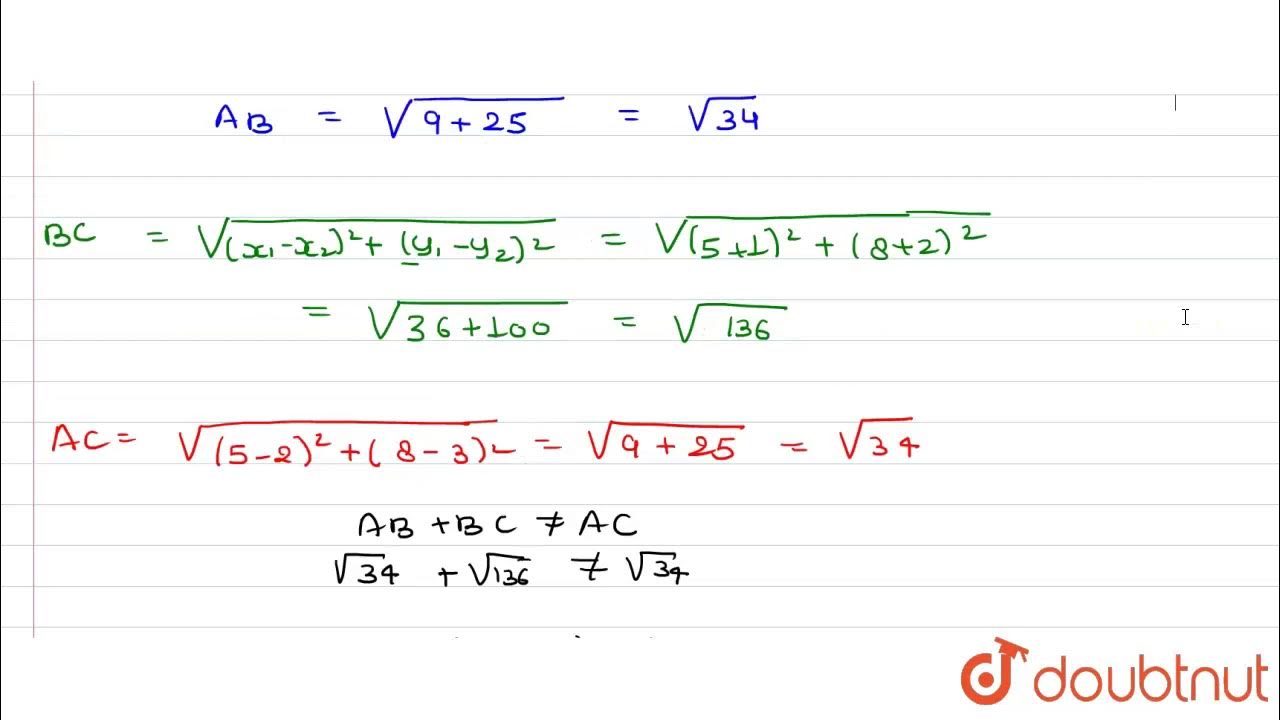 AB = √(9+25) = √34
BC = √((x₁-x₂)²+(y₁-y₂)²) = √((5+1)²+(8+2)²)
= √(36+100) = √136
AC = √((5-2)²+(8-3)²) = √(9+25) = √34
AB + BC ≠ AC
√34 + √136 ≠ √34
doubtnut